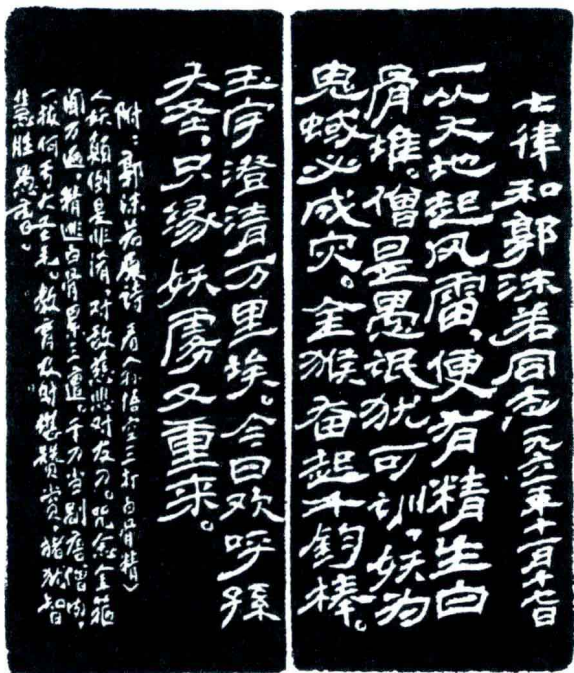 七律和郭沫若同志 一九六一年十一月十七日
一从天地起风雷,便有精生白
骨堆。僧是愚氓犹可训,妖为
鬼蜮必成灾。金猴奋起千钧棒。
玉宇澄清万里埃。今日欢呼孫
大圣,只缘妖雾又重来。
附:郭沫若原诗 看《孙悟空三打白骨精》
人妖颠倒是非淆,对敌慈悲对友刀。咒念金箍
闻万遍,精逃白骨累三遭。千刀当剐唐僧肉,
一拔何亏大圣毛。教育及时堪赞赏,猪犹智
慧胜愚曹。